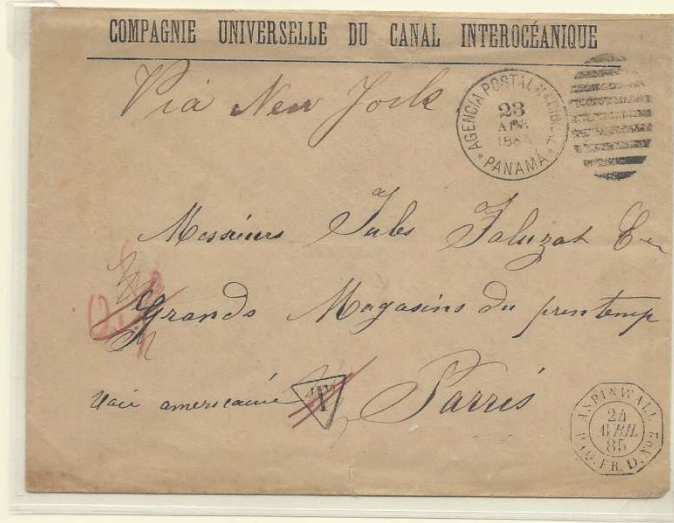 COMPAGNIE UNIVERSELLE DU CANAL INTEROCÉANIQUE
Via New York
AGENCIA POSTAL NACIONAL
23
1885
PANAMÁ
Messieurs Jules Jaluzot &
Grands Magasins du printemp
Voie americaine
T
Parris
ASPINWALL
24
AVRIL
85
PAQ. FR. D. No2